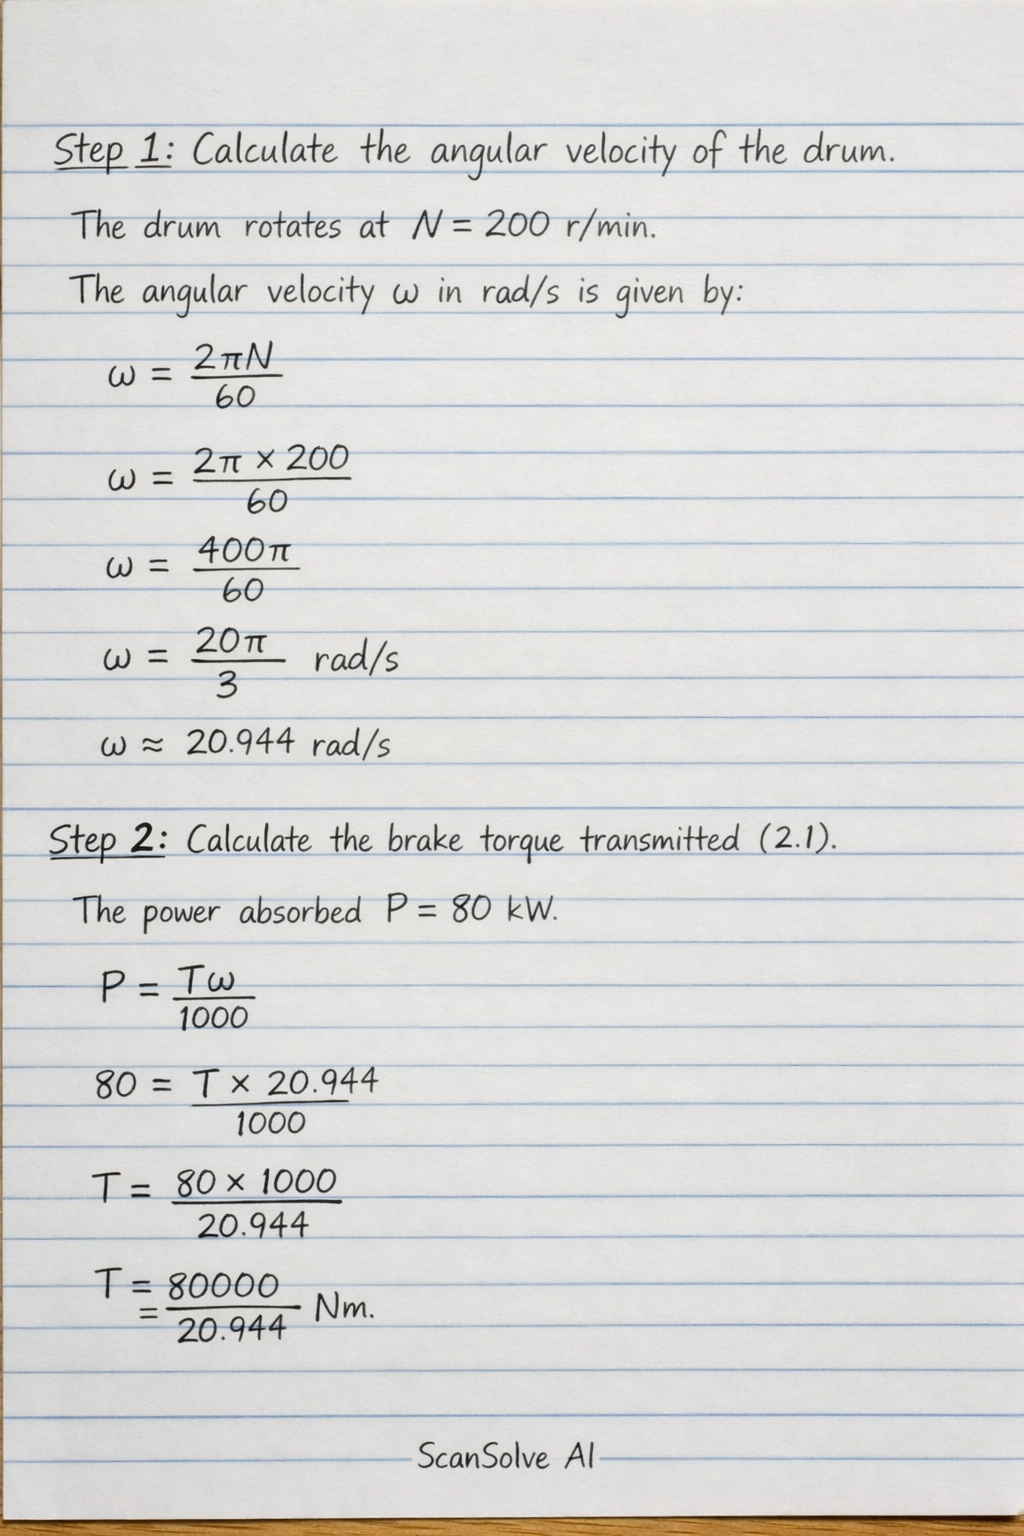 Step 1: Calculate the angular velocity of the drum.
The drum rotates at N = 200 r/min.
The angular velocity ω in rad/s is given by:
ω = 2πN / 60
ω = 2π × 200 / 60
ω = 400π / 60
ω = 20π / 3 rad/s
ω ≈ 20.944 rad/s
Step 2: Calculate the brake torque transmitted (2.1).
The power absorbed P = 80 kW.
P = Tω / 1000
80 = T × 20.944 / 1000
T = 80 × 1000 / 20.944
T = = 80000 / 20.944 Nm.
ScanSolve AI